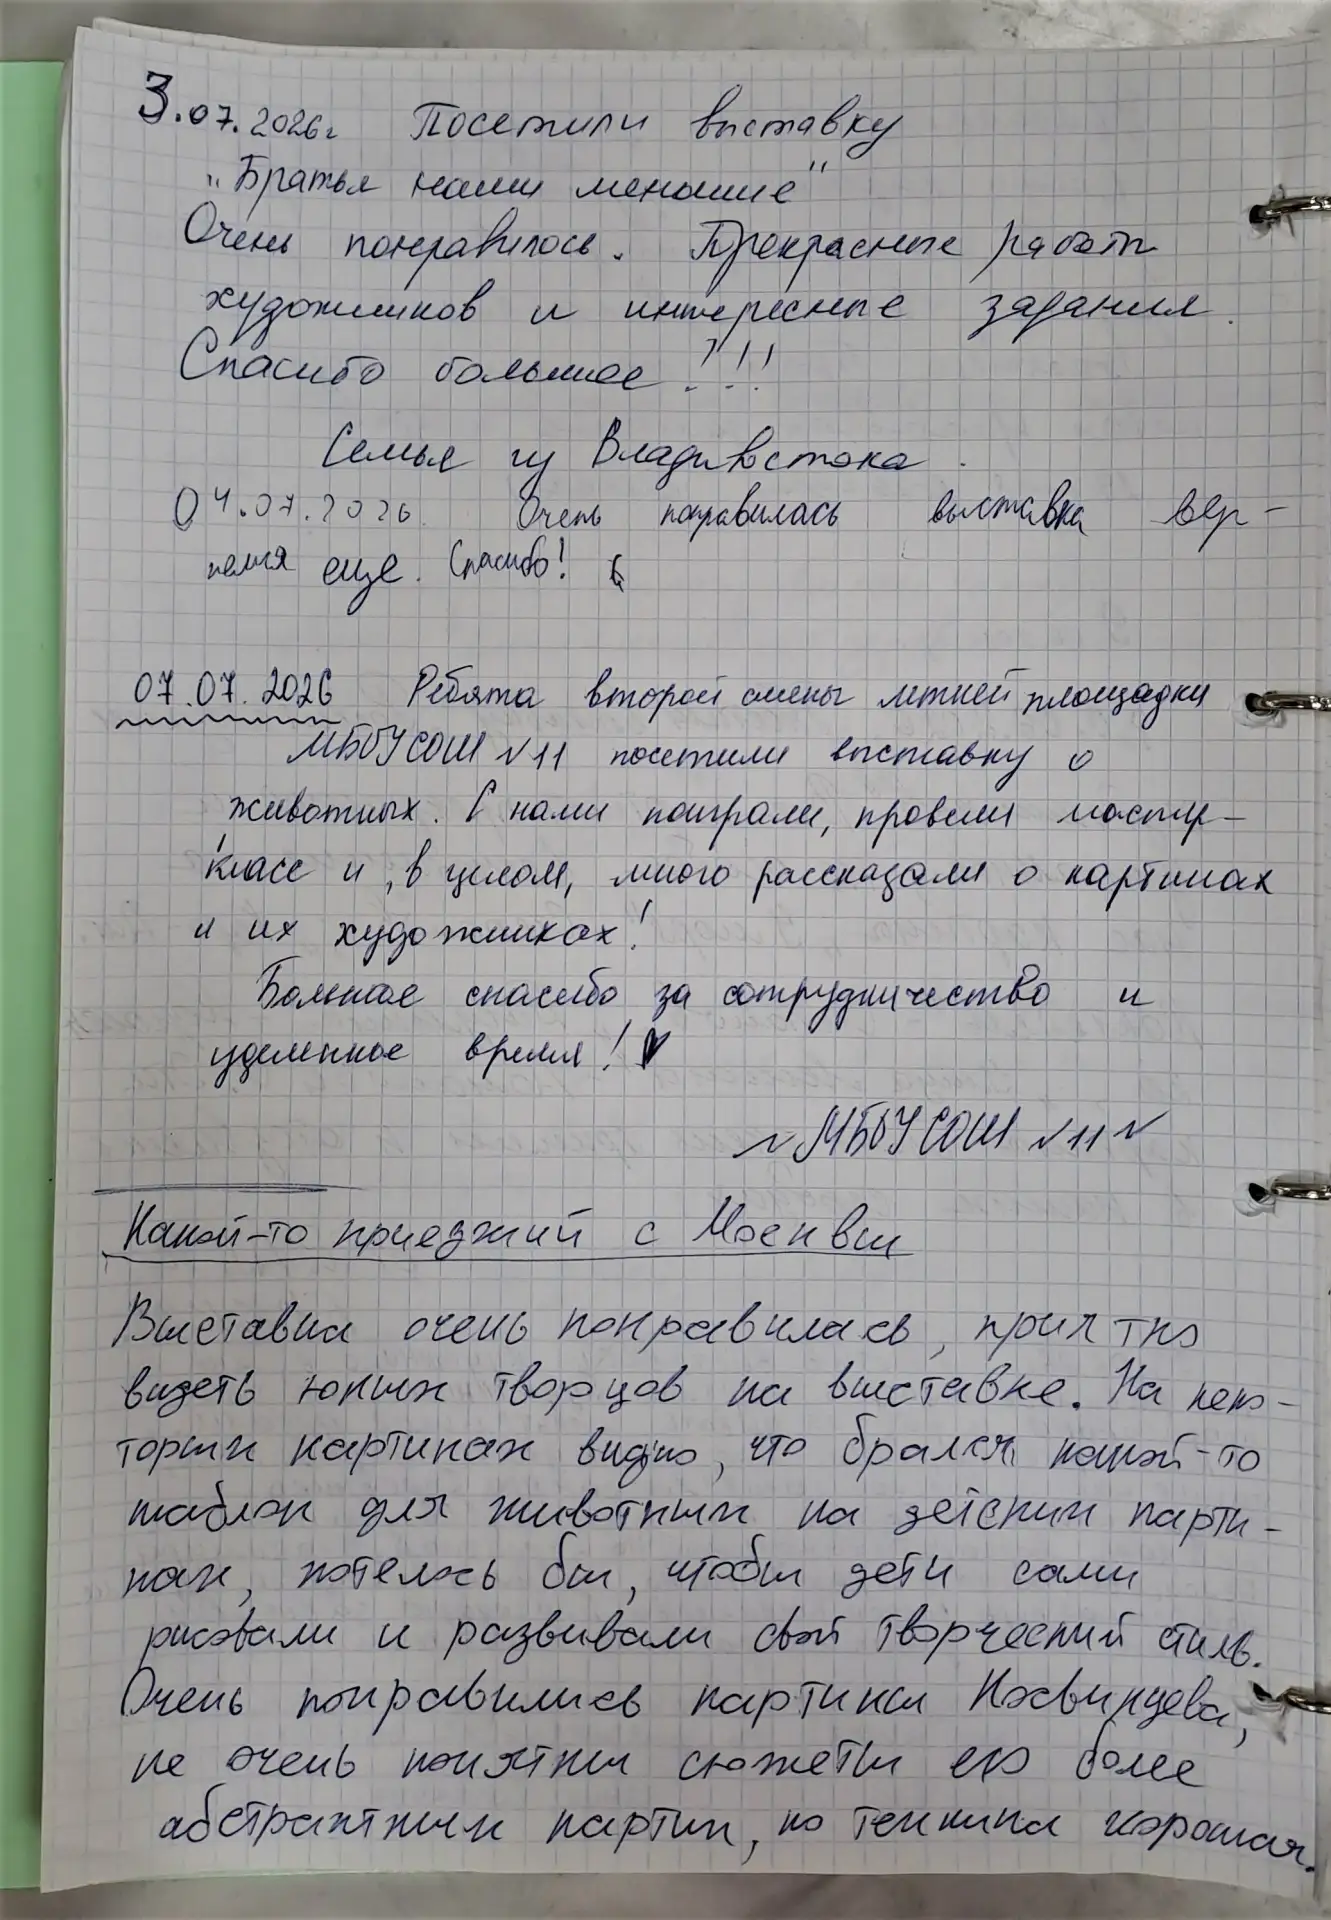 3.07.2026г Посетили выставку
"Братья наши меньшие"
Очень понравилось. Прекрасные работы
художников и интересные задания.
Спасибо большое!!!
Семья из Владивостока.
04.07.2026 Очень понравилась выставка вер-
немся еще. Спасибо!
07.07.2026 Ребята второй смены летней площадки
МБОУСОШ №11 посетили выставку о
животных. С нами поиграли, провели мастер-
класс и, в целом, много рассказали о картинах
и их художниках!
Большое спасибо за сотрудничество и
уделенное время! ♥
~МБОУСОШ №11~
Какой-то приезжий с Москвы
Выставка очень понравилась, приятно
видеть юных творцов на выставке. На неко-
торых картинах видно, что брался какой-то
шаблон для животных на детских карти-
нах, хотелось бы, чтобы дети сами
рисовали и развивали свой творческий стиль.
Очень понравились картины
не очень понятны сюжеты его более
абстрактных картин, но техника хорошая.